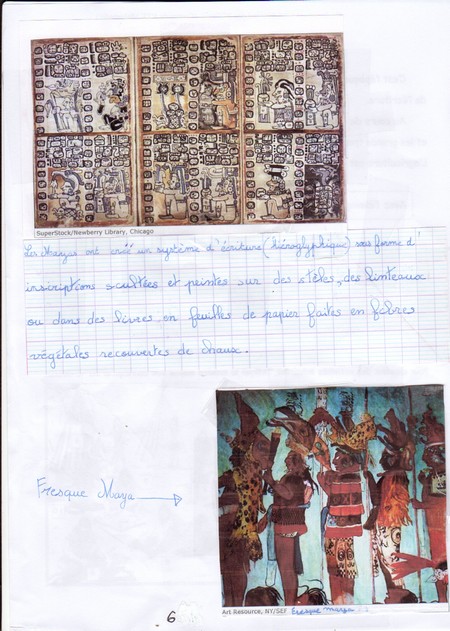 SuperStock/Newberry Library, Chicago
Les Mayas ont créé un système d'écriture (hiéroglyphique) sous forme d'
inscriptions scultées et peintes sur des stèles, des linteaux
ou dans des livres en feuilles de papier faites en fibres
végétales recouvertes de chaux.
Fresque Maya
Art Resource, NY/SEF Fresque Maya
6